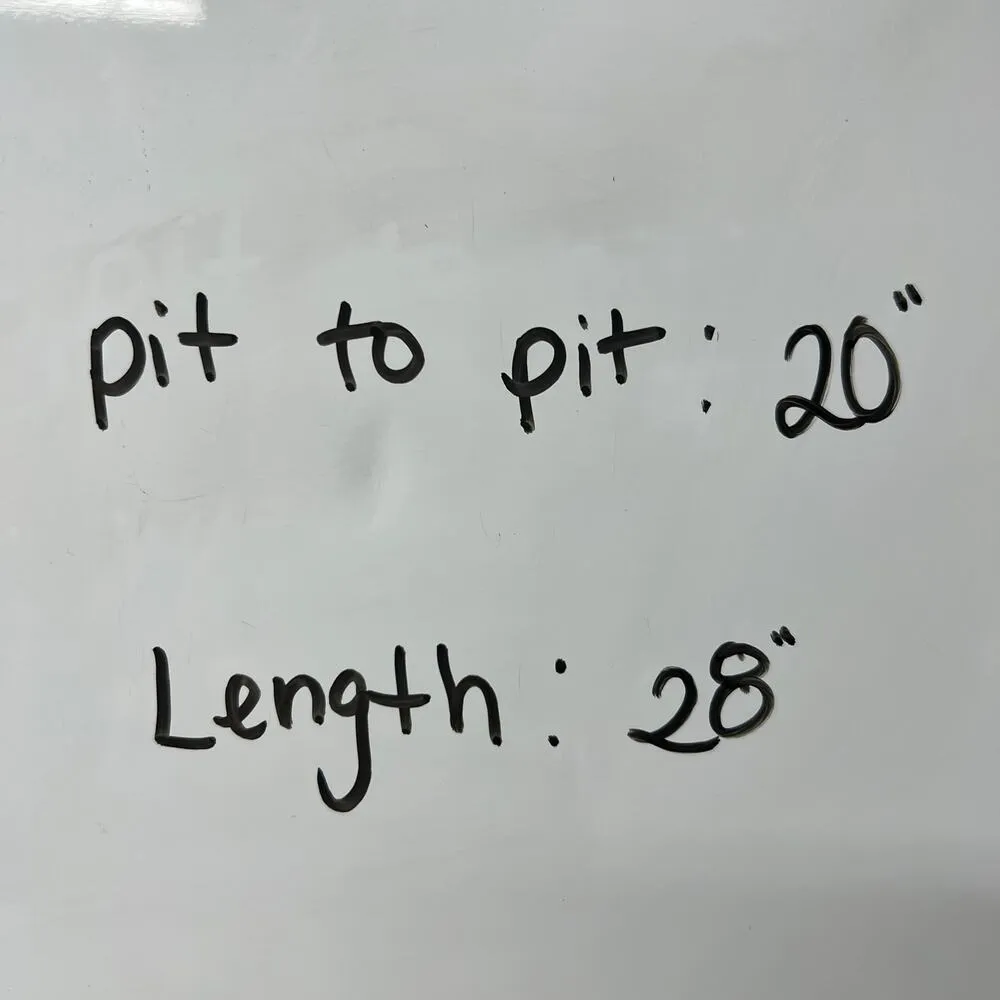 pit to pit : 20"
Length : 28"